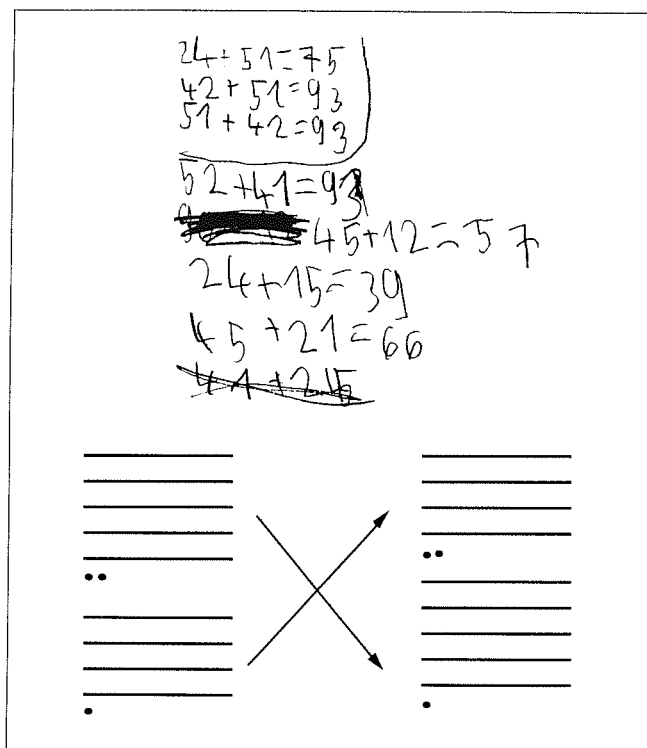 24+51=75
42+51=93
51+42=93
52+41=93
45+12=57
24+15=39
45+21=66